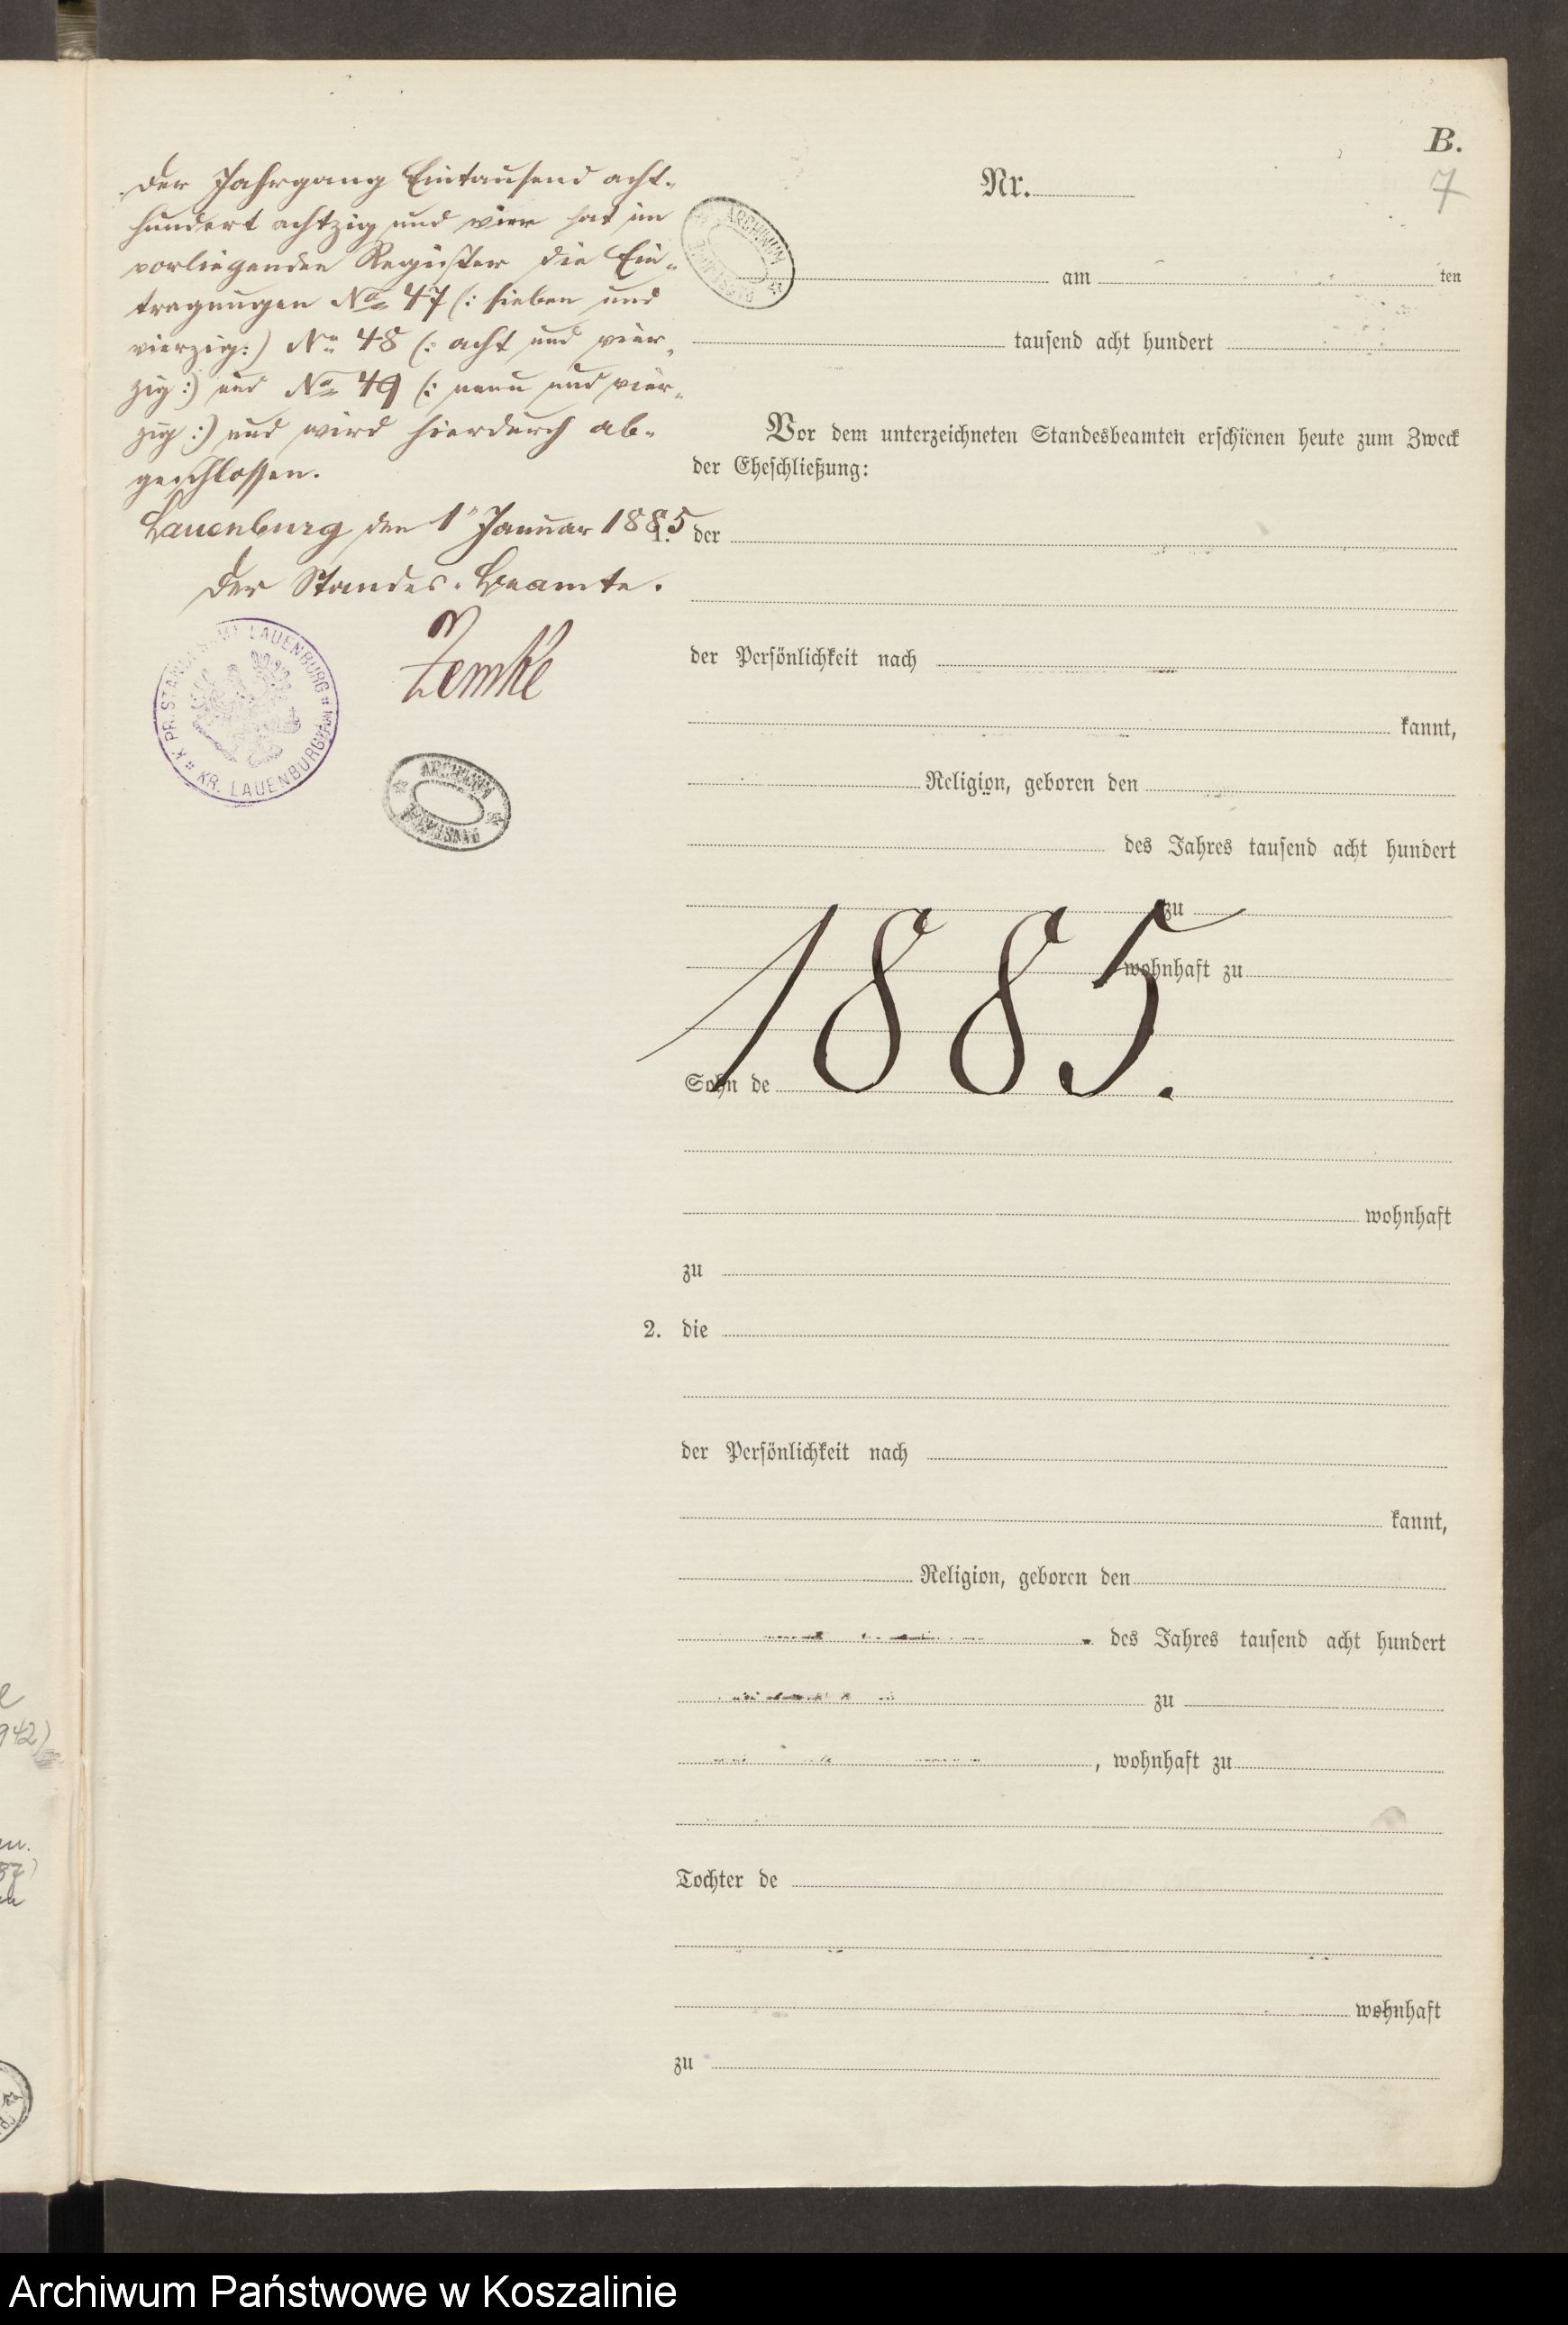 B.
7
Der Jahrgang Eintausend acht-
hundert achtzig und vier hat im
vorliegenden Register die Ein-
tragungen No 47 (: sieben und
vierzig :) No 48 (: acht und vier-
zig :) und No 49 (: neun und vier-
zig :) und wird hierdurch ab-
geschlossen.
Lauenburg den 1" Januar 1885
Der Standes-Beamte.
Zemke
K. PR. STANDESAMT LAUENBURG
KR. LAUENBURG
ARCHIWUM
Nr.
ARCHIWUM
am ten
tausend acht hundert
Vor dem unterzeichneten Standesbeamten erschienen heute zum Zweck
der Eheschließung:
1. der
der Persönlichkeit nach
kannt,
Religion, geboren den
des Jahres tausend acht hundert
zu
wohnhaft zu
1885.
Sohn de
wohnhaft
zu
2. die
der Persönlichkeit nach
kannt,
Religion, geboren den
des Jahres tausend acht hundert
zu
, wohnhaft zu
Tochter de
wohnhaft
zu
942)
Archiwum Państwowe w Koszalinie